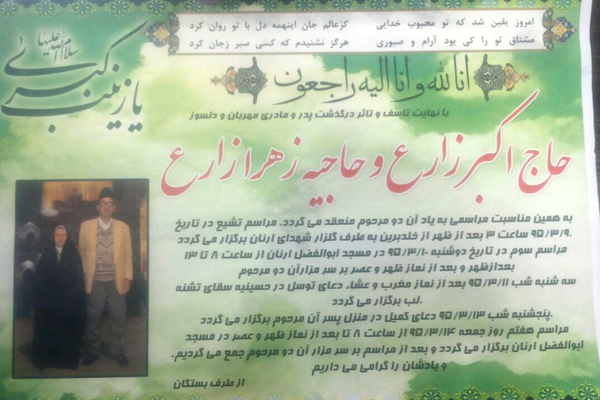 امروز یقین شد که تو محبوب خدایی    کزعالم جان اینهمه دل با تو روان کرد
مشتاق تو را کی بود آرام و صبوری    هرگز نشنیدم که کسی صبر زجان کرد
سلام الله علیها
یا زینب کبری
انا لله و انا الیه راجعون
با نهایت تاسف و تاثر درگذشت پدر و مادری مهربان و دلسوز
حاج اکبر زارع و حاجیه زهرا زارع
به همین مناسبت مراسمی به یاد آن دو مرحوم منعقد می گردد. مراسم تشیع در تاریخ
۹۵/۳/۹ ساعت ۳ بعد از ظهر از خلدبرین به طرف گلزار شهدای ارنان برگزار می گردد.
مراسم سوم در تاریخ دوشنبه ۹۵/۳/۱۰ در مسجد ابوالفضل ارنان از ساعت ۸ تا ۱۳
بعدازظهر و بعد از نماز ظهر و عصر بر سر مزارآن دو مرحوم
سه شنبه شب ۹۵/۳/۱۱ بعد از نماز مغرب و عشاء دعای توسل در حسینیه سقای تشنه
لب برگزار می گردد.
پنجشنبه شب ۹۵/۳/۱۳ دعای کمیل در منزل پسر آن مرحوم برگزار می گردد.
مراسم هفتم روز جمعه ۹۵/۳/۱۴ از ساعت ۸ تا بعد از نماز ظهر و عصر در مسجد
ابوالفضل ارنان برگزار می گردد و بعد از مراسم بر سر مزار آن دو مرحوم جمع می گردیم.
و یادشان را گرامی می داریم
از طرف بستگان